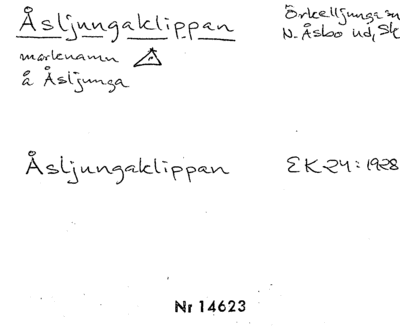 Åsljungaklippan
Örkelljunga sn
marknamn
N. Åsbo hd, Sk
å Åsljunga
Åsljungaklippan
EK 24: 1928
Nr 14623